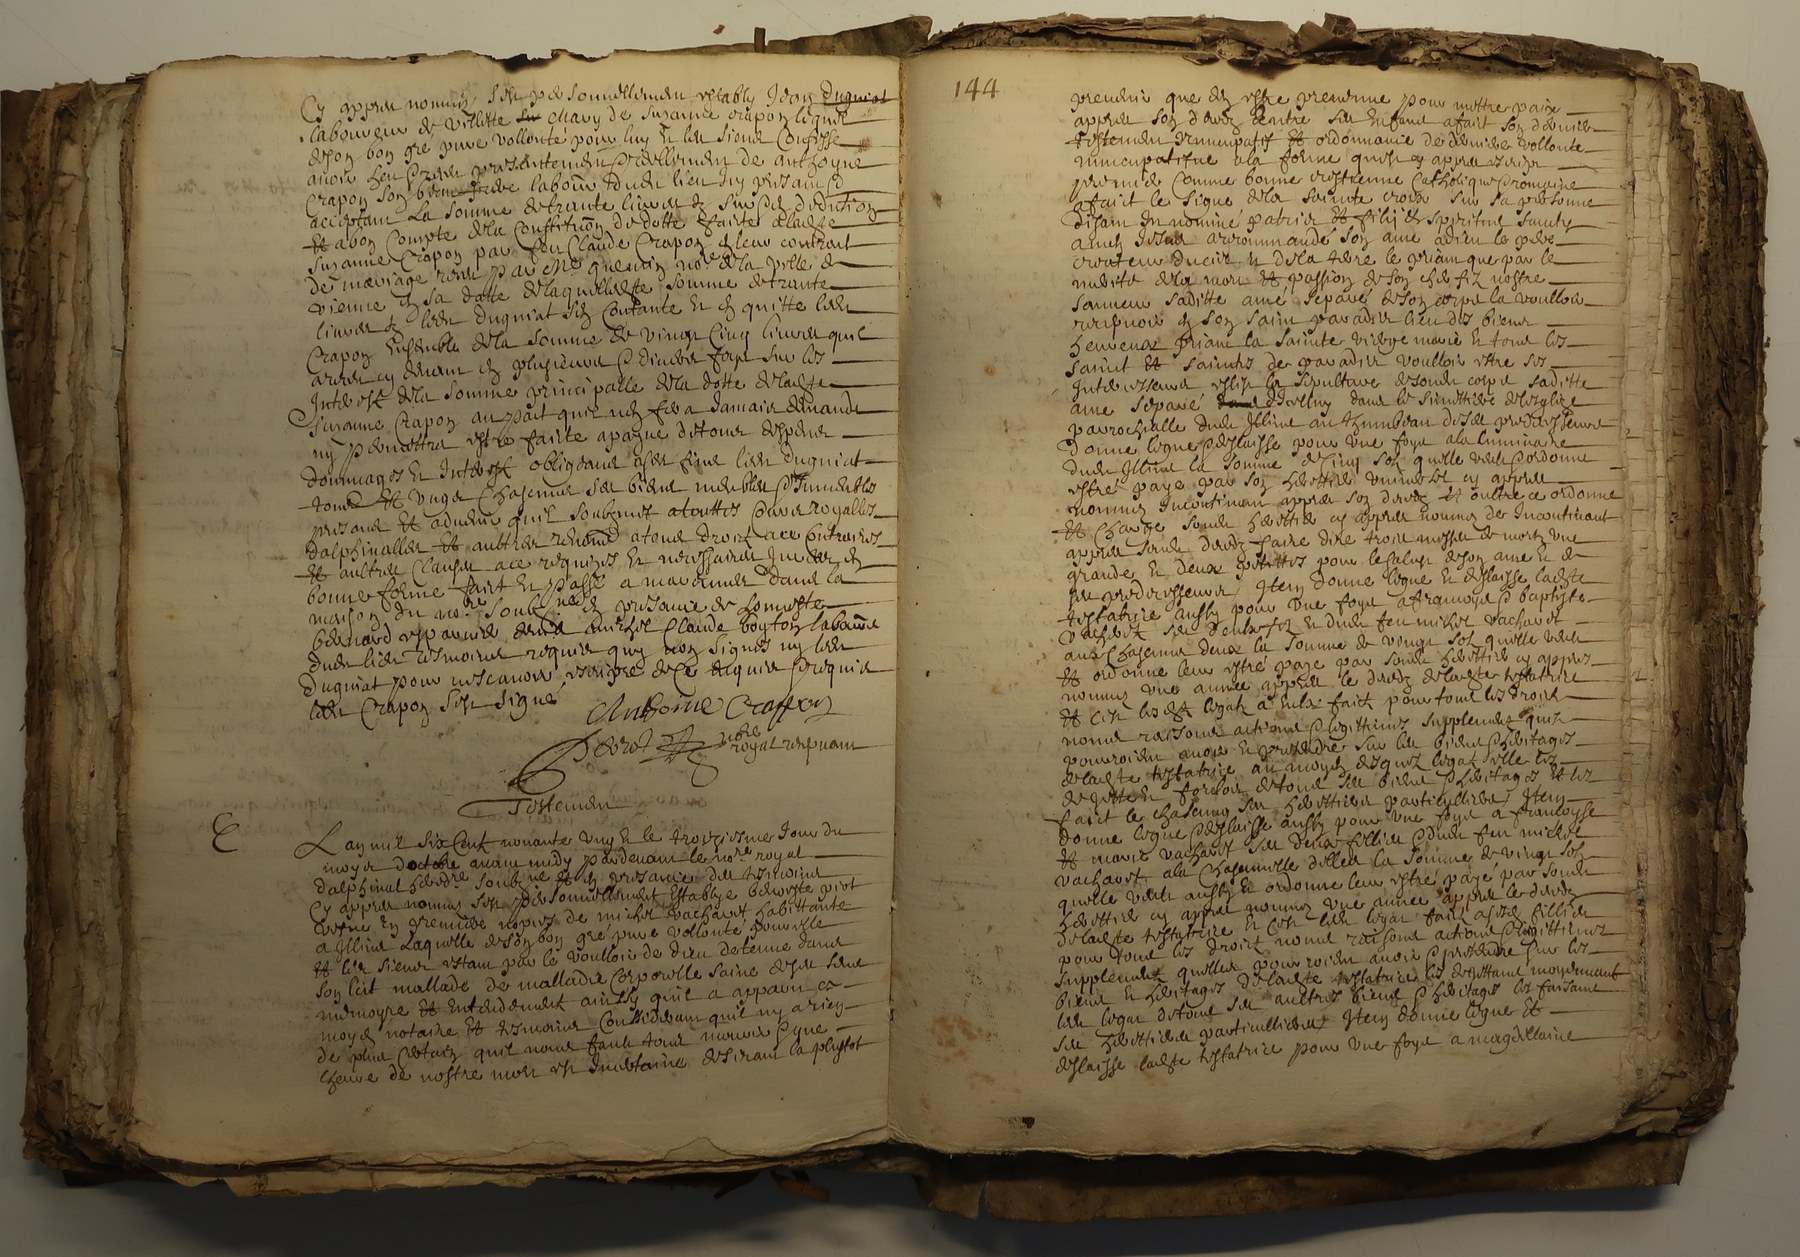 Cy appres nommés s'est personnellement estably Jean Duguiat
laboureur de Villette mary de Suzanne Crapon lequel
de son bon gré pure vollonté pour luy et les siens Confesse
avoir heu et receu presentement et reellement de Anthoyne
Crapon son beau frere labour dudit lieu Icy present et
acceptant La somme de trante livres et sur et en deduction
et a bon Compte de la Constitution de dotte faitte a ladite
Suzanne Crapon par feu Claude Crapon en leur contrait
de mariage receu par Me quentin nore de la ville de
vienne en sa datte de laquelle dite somme de trante
livres ledit Duguiat s'en Contante et en quitte ledit
Crapon Ensemble de la somme de vingt Cinq livres quil
avoit cy devant en plusieurs et diverses foys sur les
Interest de la somme principalle de la dotte de ladite
Suzanne Crapon au pait que n'en fera Jamais demande
ny permettra estre faitte a payne de tous despens
dommages et Interest obligeant a ces fins ledit Duguiat
tous et ungs Chascungs ses biens meubles et Immeubles
presans et advenir quil soubzmet a touttes Cours royalles
dalphinalles et aultres renonce a tous droit a ce Contraires
et aultres Clauses a ce requizes et necessaires Jurées en
bonne forme fait et passé a ma dans la
maison du nore soubzne en presance de honneste
Bernard et Claude Boyton laboure
dudit lieu tesmoins requis quy n'on signés ny ledit
Duguiat pour ne scavoir escripre de ce enquis et requis
ledit Crapon s'est signé
Anthoine Crapon
nore
royal recepvant
Testement
L an mil six Cent nonante ung et le troiziesme Jour du
moys doctobre avant midy pardevant le nore royal
dalphinal heredre soubzne et en presance des tesmoins
Cy appres nommés s'est personnellement Establye benoiste pivt
vefve en premiere nopces de michel vachavet habittante
a Illins Laquelle de son bon gré pure vollonté pour elle
et les siens estant par le voulloir de dieu detenue dans
son lict mallade de malladie Corporelle saine de ses sens
memoyre et Entendement ainssy quil a apparu a
moyd notaire et tesmoins Considerant quil ny a rien
de plus Certain quil nous fault tous mourir et que
lheure de nostre mort est Incertaine desirant la plustot
144
prevenir que den estre prevenue pour mettre paix
appres son deces Entre ses Enfans a fait son dernier
testement nuncupatif et ordonnance de derniere vollonte
nuncupatifve a la forme quest cy appres escripte
premier Comme bonne crestienne Catholique et romaine
a faict le signe de la sainte croix sur sa personne
disant In nomine patris et filij et spiritus sancty
amen Jesus a recommandé son ame a dieu le pere
createur du ciel et de la terre le priant que par le
merite de la mort et passion de son cher filz nostre
sauveur saditte ame separée de son corps la voulloir
recepvoir en son saint paradis lieu des biens
heureux priant la sainte vierge marie et tous les
saints et saintes de paradis voulloir estre ses
Intercesseurs eslit la sepulture de sondit corps saditte
ame separée dicelluy dans le simettiere de leglize
parrochialle dudit Illins au thumbeau de ses predecesseurs
Donne legue et delaisse pour une foys a la luminaire
dudit Illins la somme de Cinq sols quelle veult et ordonne
estre payé par son heritier universel cy appres
nommé Incontinant appres son deces et oultre ce ordonne
et Charge sondit heritier cy appres nommé de Incontinant
appres sondit deces faire dire trois messes de mortz une
grande et deux petittes pour le salut de son ame et de
ses predecesseurs Item Donne legue et delaisse ladite
testatrice aussy pour une foys a francoys et baptiste
vachavet ses deux filz et dudit feu michel vachavet
aux Chascungs deux la somme de vingt sols quelle veult
et ordonne leur estre payé par sondit heritier cy appres
nommé une année appres le deces de ladite testatrice
et c'est lesdit legatz a eulx faict pour tous les droits
noms raisons actions et legittimes supplement quilz
pourroient avoir et pretendre sur les biens et heritages
de ladite testatrice au moyen desquez legatz elle les
de jette et forclos de tous ses biens et heritages et les
faict le chascung ses heritiers particulliers Item
donne legue et delaisse aussy pour une foys a francoyse
et marie vachavet ses deux filles et dudit feu michel
vachavet a la Chascunille delles la somme de vingt sols
quelle veult aussy et ordonne leur estre payé par sondit
heritier cy appres nommé une année appres le deces
de ladite testatrice et c'est ledit legat fait a ces filles
pour tous les droits noms raisons actions et legittimes
supplement quelles pourroient avoir et pretendre sur les
biens et heritages de ladite testatrice les dejettant moyennant
ledit legat de tous ses aultres biens et heritages les faisant
ses heritieres particullieres Item donne legue et
delaisse ladite testatrice pour une foys a magdellaine